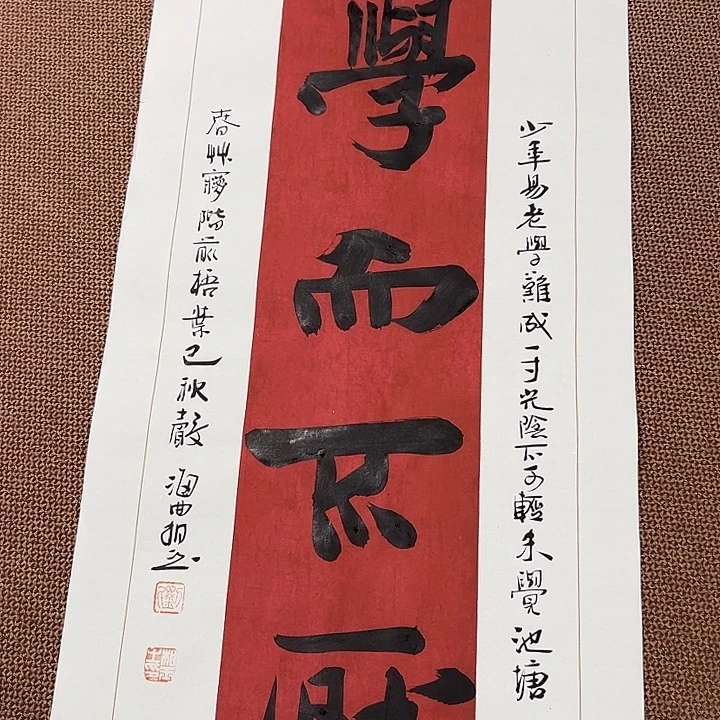 學而不厭
少年易老學難成一寸光陰不可輕未覺池塘
春艸夢階前梧葉已秋聲